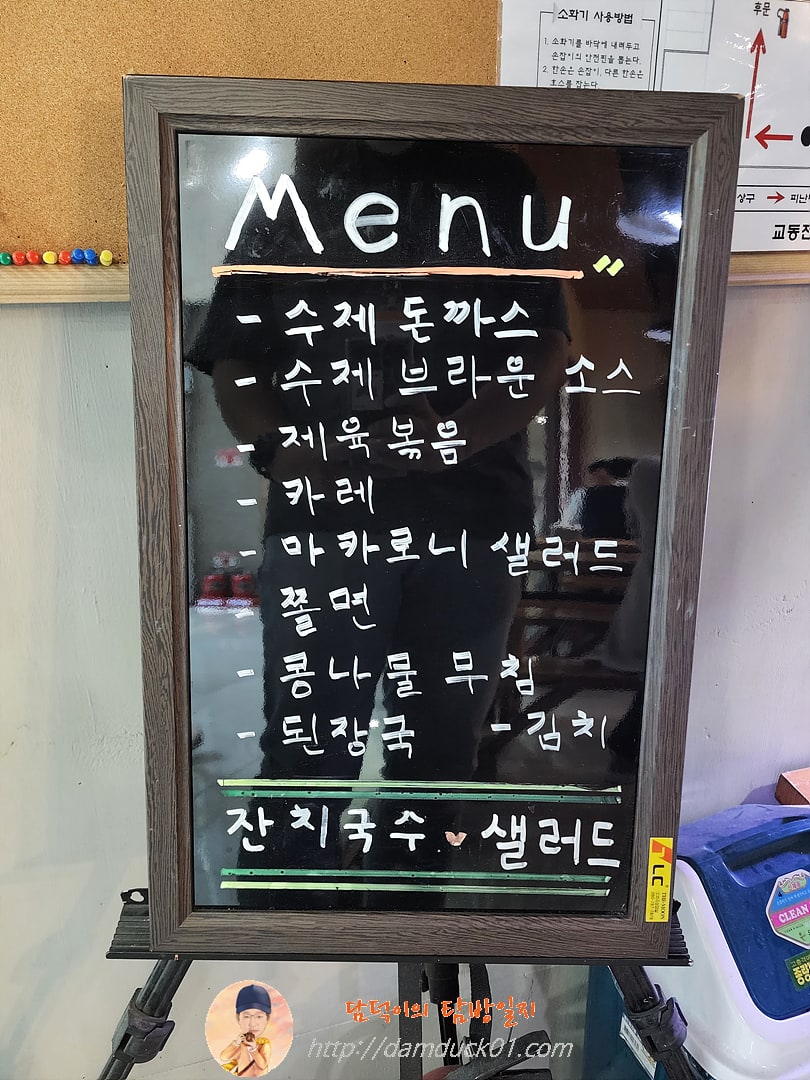 소화기 사용방법
1. 소화기를 바닥에 내려두고
손잡이의 안전핀을 뽑는다.
2. 한손은 손잡이, 다른 한손은
호스를 잡는다.
후문
상구 → 피난
교동전
Menu
- 수제 돈까스
- 수제 브라운 소스
- 제육볶음
- 카레
- 마카로니 샐러드
- 쫄면
- 콩나물 무침
- 된장국 - 김치
잔치국수 샐러드
LC
CLEAN
담덕이의 탐방일지
http://damduck01.com